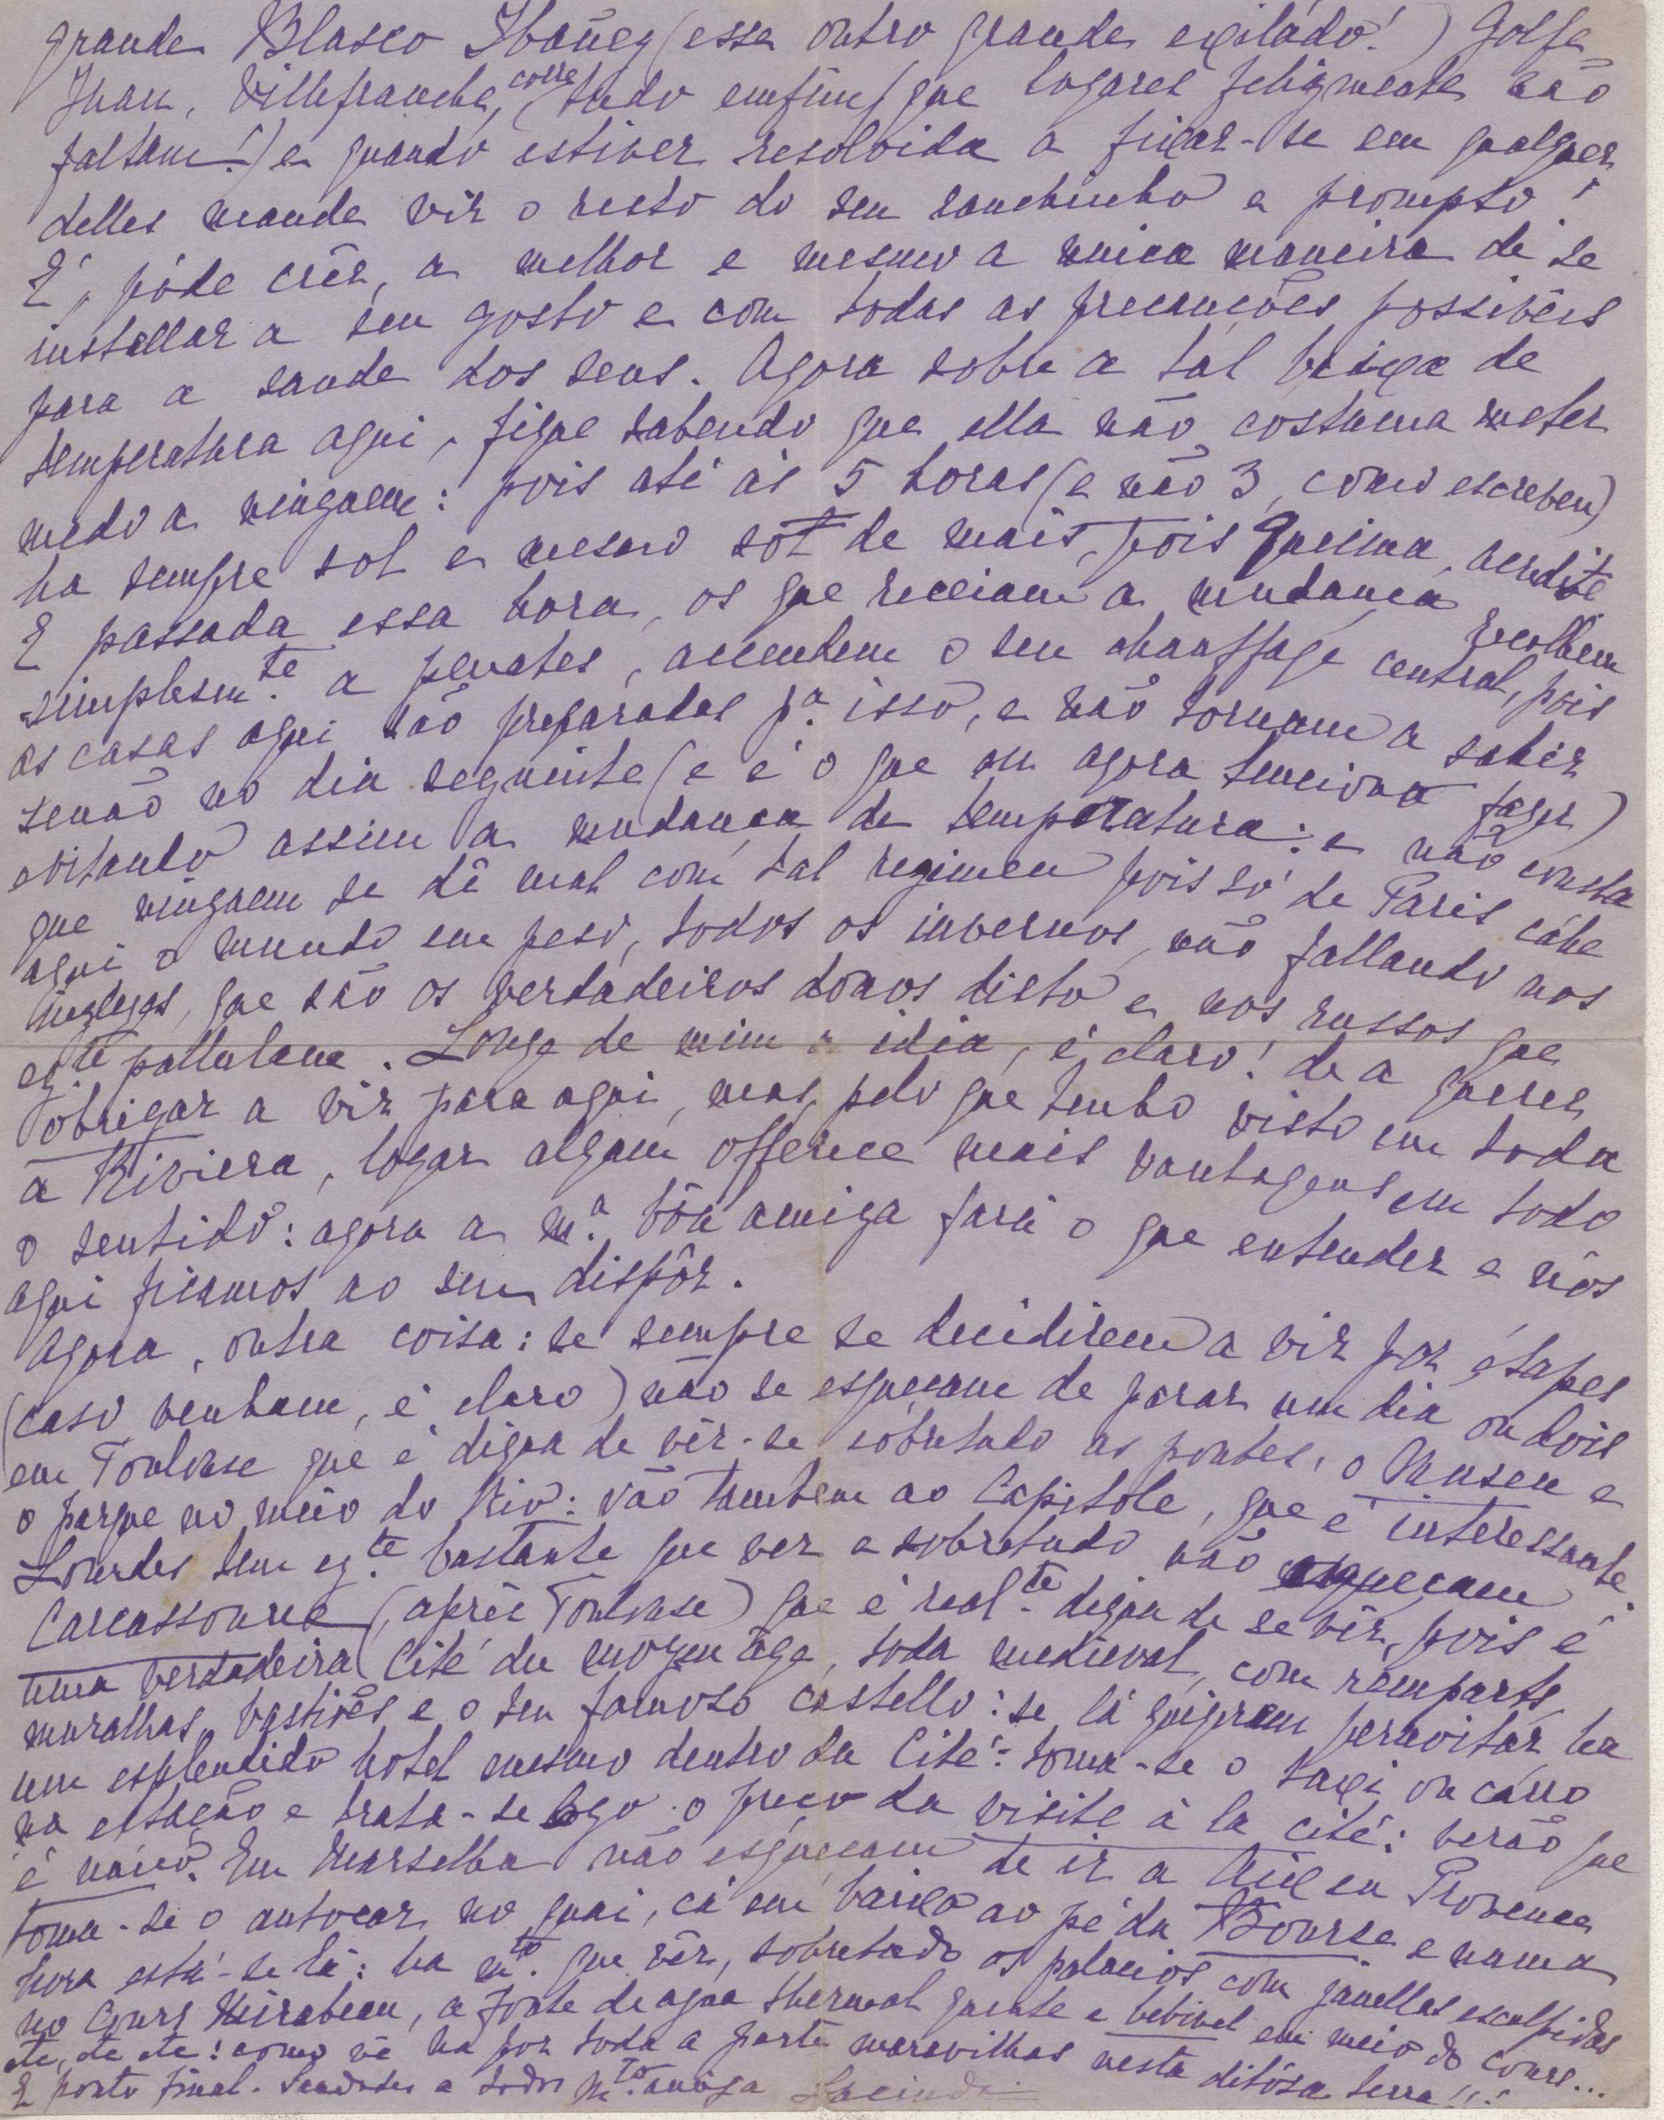 grande Blasco Ibañez (esse outro grande exilado!) Golfe
Juan, Villefranche, corre tudo emfim (que logares felizmente não
faltam!) e quando estiver resolvida a fixar-se em qualquer
delles mande vir o resto do seu ranchinho e prompto!
E', póde crêr, a melhor e mesmo a unica maneira de se
installar a seu gosto e com todas as precauções possiveis
para a saude dos seus. Agora sobre a tal baixa de
temperatura aqui, fique sabendo que ella não costuma meter
medo a ninguem: pois até ás 5 horas (e não 3, como escreveu)
ha sempre sol e mesmo sol de mais, pois queima, acredite
E passada essa hora, os que receiam a mudança recolhem
simplesm.te a penates, accendem o seu chauffage central, pois
as casas aqui são preparadas p.a isso, e não tornam a sahir
senão no dia seguinte (e é o que eu agora tenciono fazer)
evitando assim a mudança de temperatura: e não consta
que ninguem se dê mal com tal regimen pois só de Paris cáhe
aqui o mundo em peso, todos os invernos, não fallando nos
inglezes, que são os verdadeiros donos disto e nos russos que
eg.te pullulam. Longe de mim a idéa, é claro! de a querer
obrigar a vir para aqui, mas, pelo que tenho visto em toda
a Riviera, logar algum offerece mais vantagens em todo
o sentido: agora a m.a bôa amiga fará o que entender e nós
aqui ficamos ao seu dispôr.
Agora, outra coisa: se sempre se decidirem a vir por étapes
(caso venham, é claro) não se esqueçam de parar um dia ou dois
em Toulouse que é digna de vêr-se sobretudo as pontes, o Museu e
o parque no meio do Rio: vão tambem ao Capitole, que é interessante.
Lourdes tem eg.te bastante que ver e sobretudo não esqueçam
Carcassonne (après Toulouse) que é real.te digna de se vêr, pois é
uma verdadeira Cité du moyen âge, toda medieval, com remparts,
muralhas, bastiões e o seu famoso castello: se lá quizerem pernoitar, ha
um esplendido hotel mesmo dentro da Cité: toma-se o taxi ou carro
na estação e trata-se logo o preço da visite à la cité: verão que
é unico. Em Marselha não esqueçam de ir a Aix en Provence
toma-se o autocar no quai, cá em baixo ao pé da Bourse e numa
hora está-se lá: ha m.to que vêr, sobretudo os palacios com janellas esculpidas
no Cours Mirabeau, a fonte de agua thermal quente e bebivel em meio do Cours...
etc, etc etc: como vê ha por toda a parte maravilhas nesta ditósa terra!!!
E ponto final. Saudades a todos m.to amiga Lucinda